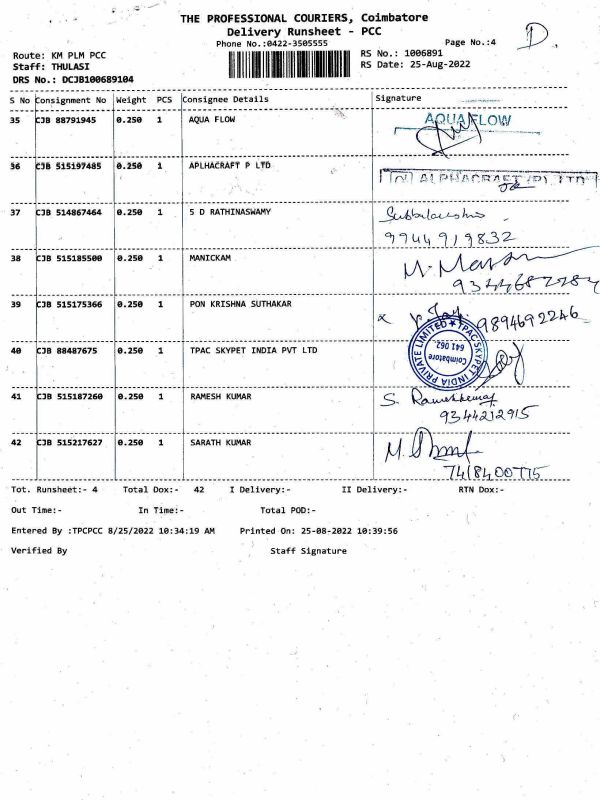 THE PROFESSIONAL COURIERS, Coimbatore
Delivery Runsheet - PCC
Phone No.:0422-3505555
Page No.:4
D.
Route: KM PLM PCC
RS No.: 1006891
Staff: THULASI
RS Date: 25-Aug-2022
DRS No.: DCJB100689104
S No Consignment No Weight PCS Consignee Details Signature
35 CJB 88791945 0.250 1 AQUA FLOW AQUA FLOW
36 CJB 515197485 0.250 1 APLHACRAFT P LTD ALPHACRAFT (P) LTD
37 CJB 514867464 0.250 1 S D RATHINASWAMY
9944919832
38 CJB 515185500 0.250 1 MANICKAM
39 CJB 515175366 0.250 1 PON KRISHNA SUTHAKAR 9894692246
40 CJB 88487675 0.250 1 TPAC SKYPET INDIA PVT LTD
TPAC SKYPET INDIA PRIVATE LIMITED ★
Coimbatore
641 062.
41 CJB 515187260 0.250 1 RAMESH KUMAR S. Rameshkumar
9344212915
42 CJB 515217627 0.250 1 SARATH KUMAR
7418400775
Tot. Runsheet:- 4 Total Dox:- 42 I Delivery:- II Delivery:- RTN Dox:-
Out Time:- In Time:- Total POD:-
Entered By :TPCPCC 8/25/2022 10:34:19 AM Printed On: 25-08-2022 10:39:56
Verified By Staff Signature